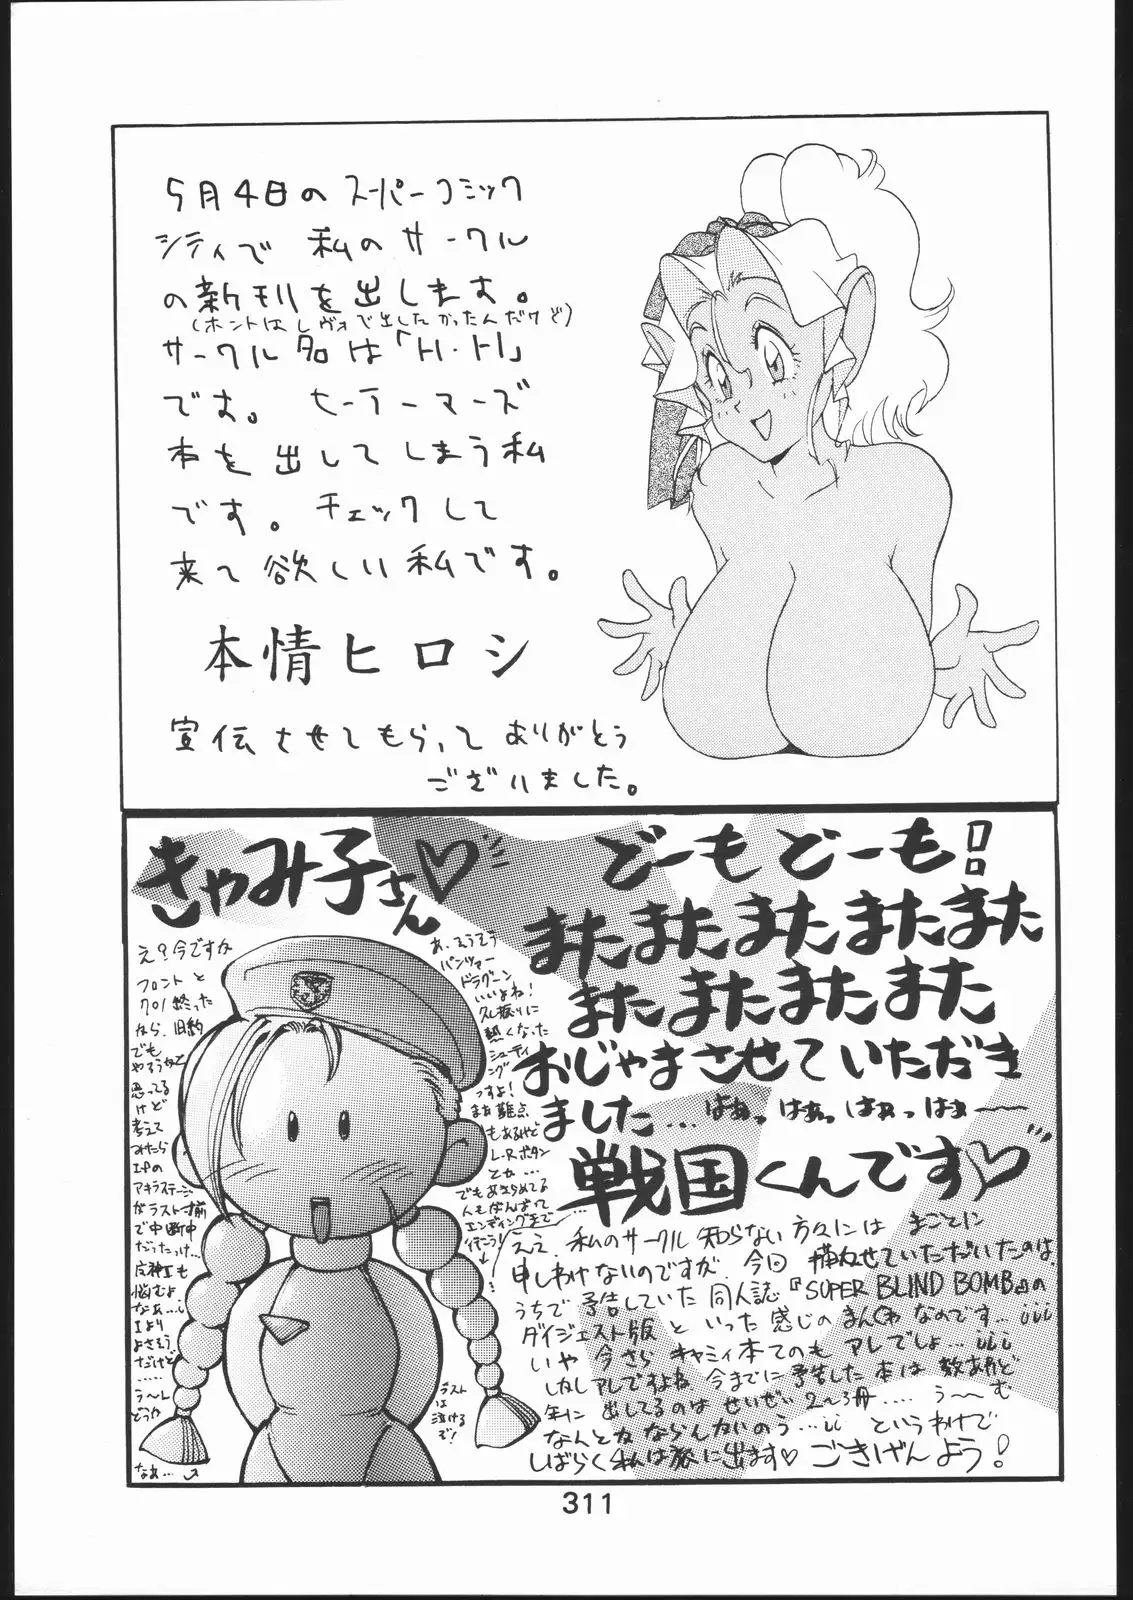 5月4日のスーパーコミック
シティで 私のサークル
の新刊を出します。
(ホントはレヴォで出したかったんだけど)
サークル名は「トト・トト」
です。 セーラーマーズ
本を出してしまう私
です。チェックして
来て欲しい私です。
本情ヒロシ
宣伝させてもらって ありがとう
ございました。
きゃみ子さん♡
どーもどーも!
またまたまたまたまた
またまたまたまた
おじゃまさせていただき
ました…はぁっはぁっはぁっはぁ〜
戦国くんです♡
ええ、私のサークル知らない方々には まことに
申しわけないのですが、今回 描かせていただいたのは、
うちで予告していた同人誌『SUPER BLIND BOMB』の
ダイジェスト版 といった感じのまんがなのです…iii
いや 今さら キャミィ本てのも アレでしょ…iii
しかしアレですよね、今までに予告した本は数あれど
年に出してるのは せいぜい2〜3冊…. う〜む
なんとかならんかいのう…ii というわけで
しばらく私は旅に出ます♡ ごきげんよう!
あ、そうそう
パンツァー
ドラグーン
いいよね!
久し振りに
熱くなった
シューティ
ングっ
すよ!
まあ難点
もあるけど
L・Rボタン
とか…
でもあきらめてる
人もがんばって
エンディングまで
行こう!
え?今ですか
フロントと
クロノ終った
なら、旧約
でも
やろうかと
思ってる
けど
考えて
みたら
I・Pの
アキラステージ
がラスト前
で中断中
だったっけ…
悩むよ
なぁ…i
Iより
よさそう
だけど
……
う〜し
どうか
なぁ…
ラスト
は
泣ける
ぞ!
311